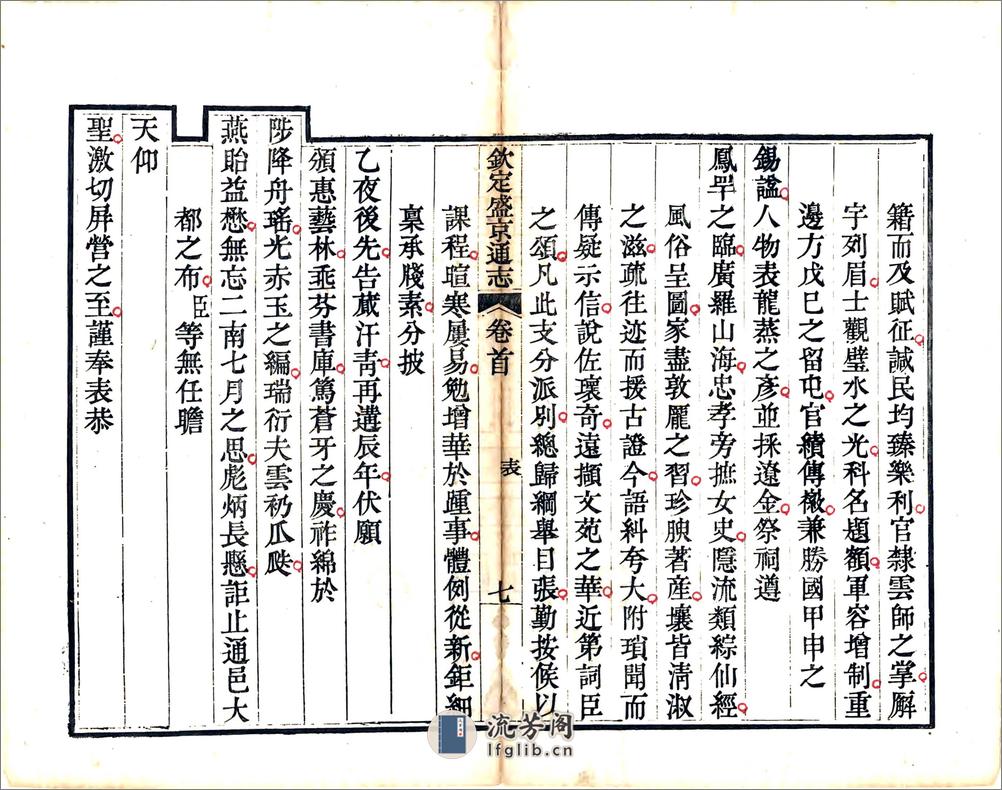 籍而及賦征諴民均臻樂利官隸雲師之掌廨
宇列眉士觀璧水之光科名題額軍容增制重
邊方戊巳之留屯官績傳徽兼勝國甲申之
錫諡人物表龍蒸之彥並採遼金祭祠遵
鳳罕之臨廣羅山海忠孝旁摭女史隱流類綜仙經
風俗呈圖家盡敦龐之習珍腴著產壤皆淸淑
之滋疏往迹而援古證今語糾夸大附瑣聞而
傳疑示信說佐瓌奇遠擷文苑之華近第詞臣
之頌凡此支分派別總歸綱舉目張勤按候以
欽定盛京通志 卷首 表 七
課程暄寒屢易勉增華於踵事體例從新鉅細
稟承牋素分披
乙夜後先告蕆汗靑再遘辰年伏願
頒惠藝林亟芬書庫篤蒼牙之慶祚綿於
陟降舟瑤光赤玉之編瑞衍夫雲礽瓜瓞
燕貽益懋無忘二南七月之思彪炳長懸詎止通邑大
都之布臣等無任瞻
天仰
聖激切屏營之至謹奉表恭
流芳阁
lfglib.cn